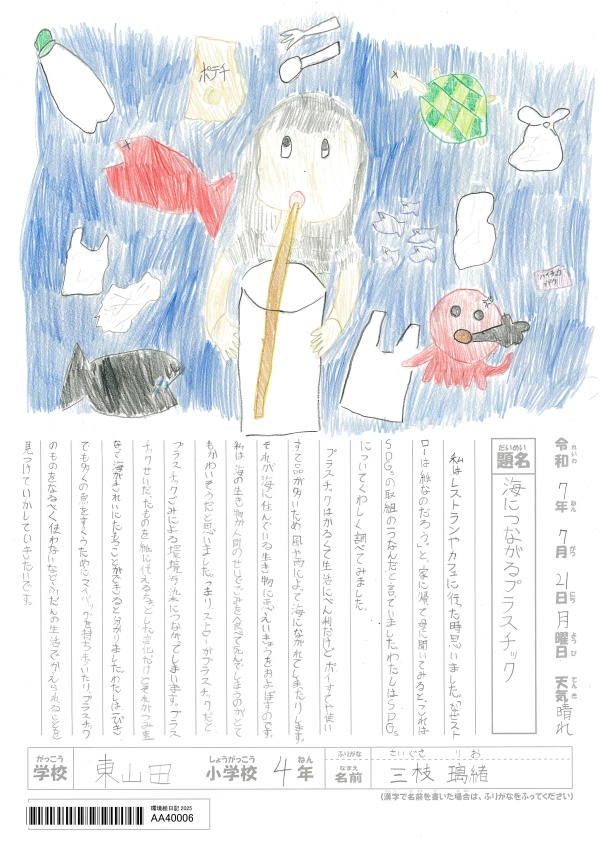 ポテチ
令和7年7月21日月曜日 天気 晴れ
れいわ ねん がつ にち ようび てんき
だいめい
題名
海につながるプラスチック
私はレストランやカフェに行った時思いました。「なぜスト
ローは紙なのだろう。」と、家に帰って母に聞いてみると、これは
SDGsの取組の一つなんだと言っていました。わたしはSDGs
についてくわしく調べてみました。
プラスチックはかるくて生活にべん利だけど、ポイすてや使い
すて品が多いため風や雨によって海にながれてしまったりします。
それが海に住んでいる生き物に悪えいきょうをおよぼすのです。
私は海の生き物が人間のせいでごみを食べて死んでしまうのがとて
もかわいそうだと思いました。つまり、ストローがプラスチックだと
プラスチックごみによる環境汚染につながってしまいます。プラス
チックせいだったものを紙に代えるちょっとした変化だけどそれがつみ重
なって海がきれいにたもつことができると分かりました。わたしは一ぴき
でも多くの魚をすくうためにマイバッグを持ち歩いたり、プラスチック
のものをなるべく使わないなど、ふだんの生活でかえられることを
見つけていかしていきたいです。
がっこう しょうがっこう ねん ふりがな さいぐさ りお
学校 東山田 小学校 4年 なまえ 名前 三枝 璃緒
(漢字で名前を書いた場合は、ふりがなをふってください)
環境絵日記 2025
AA40006